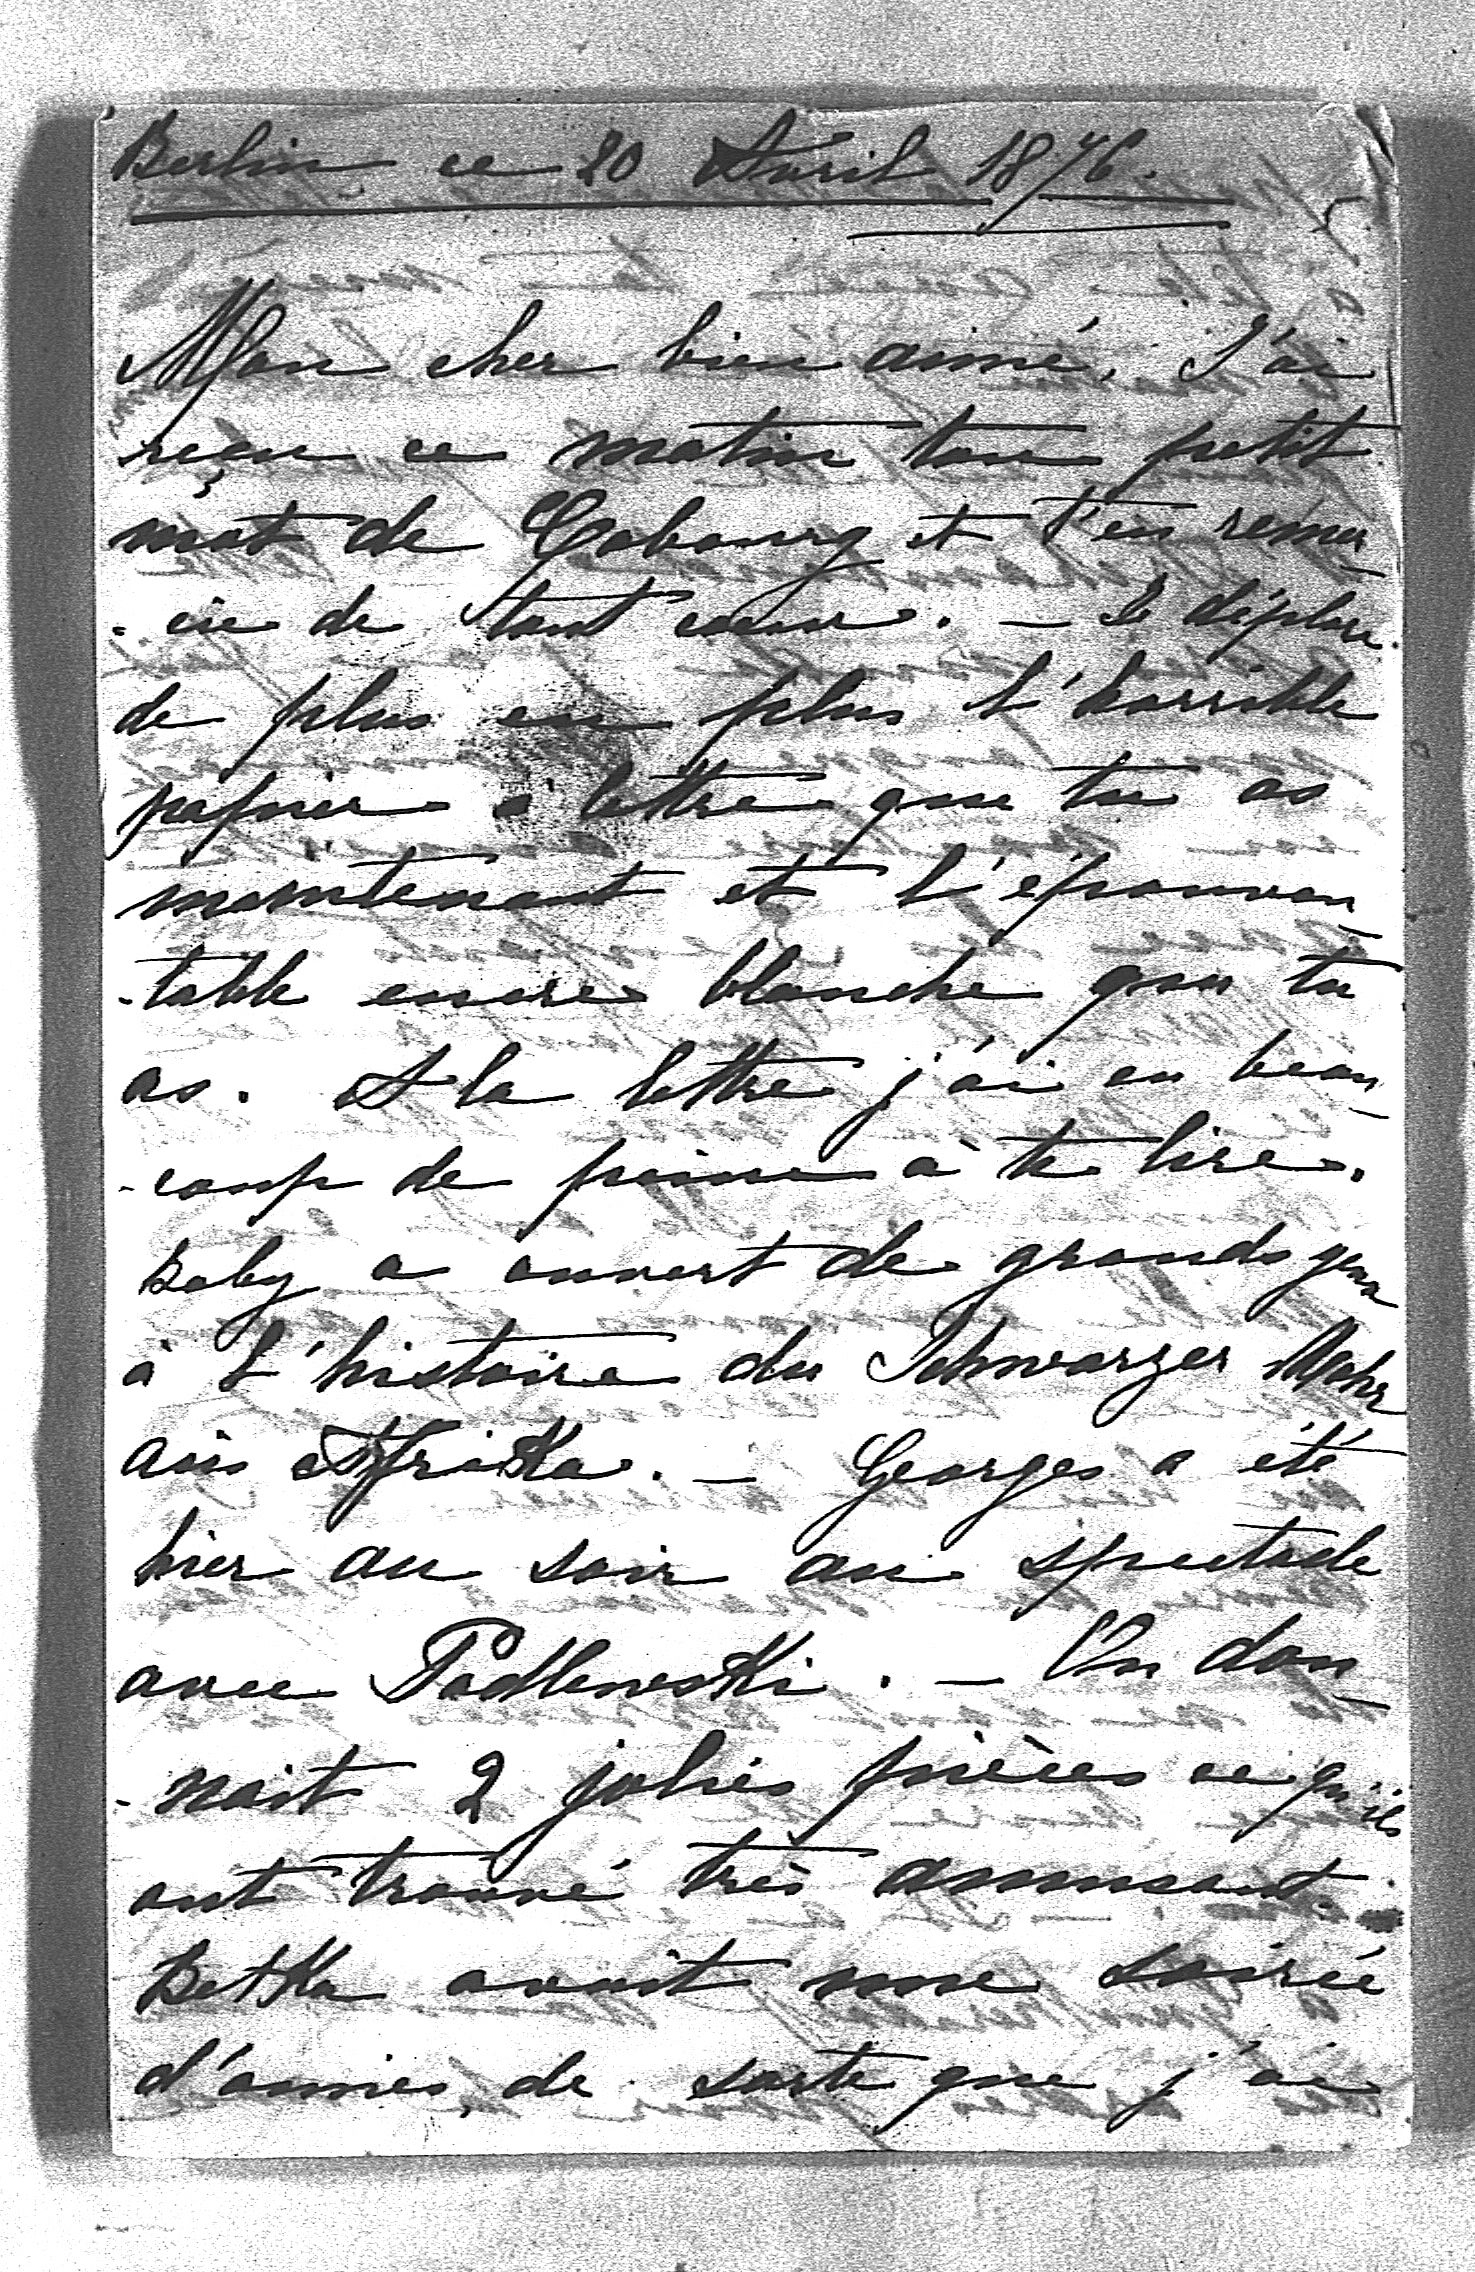 Berlin ce 20 Avril 1876.
Mon cher bien aimé, J'ai
reçu ce matin ton petit
mot de Cobourg et t'en remer
- cie de tout coeur. — Je déplore
de plus en plus l'horrible
papier à lettre que tu as
maintenant et l'épouvan
- table encre blanche que tu
as. A la lettre j'ai eu beau
- coup de peine à te lire.
Baby a ouvert de grands yeux
à l'histoire du Schwarzer Mohr
aus Afrika. — Georges a été
hier au soir au spectacle
avec Padlewski. — On don
- nait 2 jolies pièces ce qu'ils
ont trouvé très amusant.
Betka avait une soirée
d'amies, de sorte que j'ai